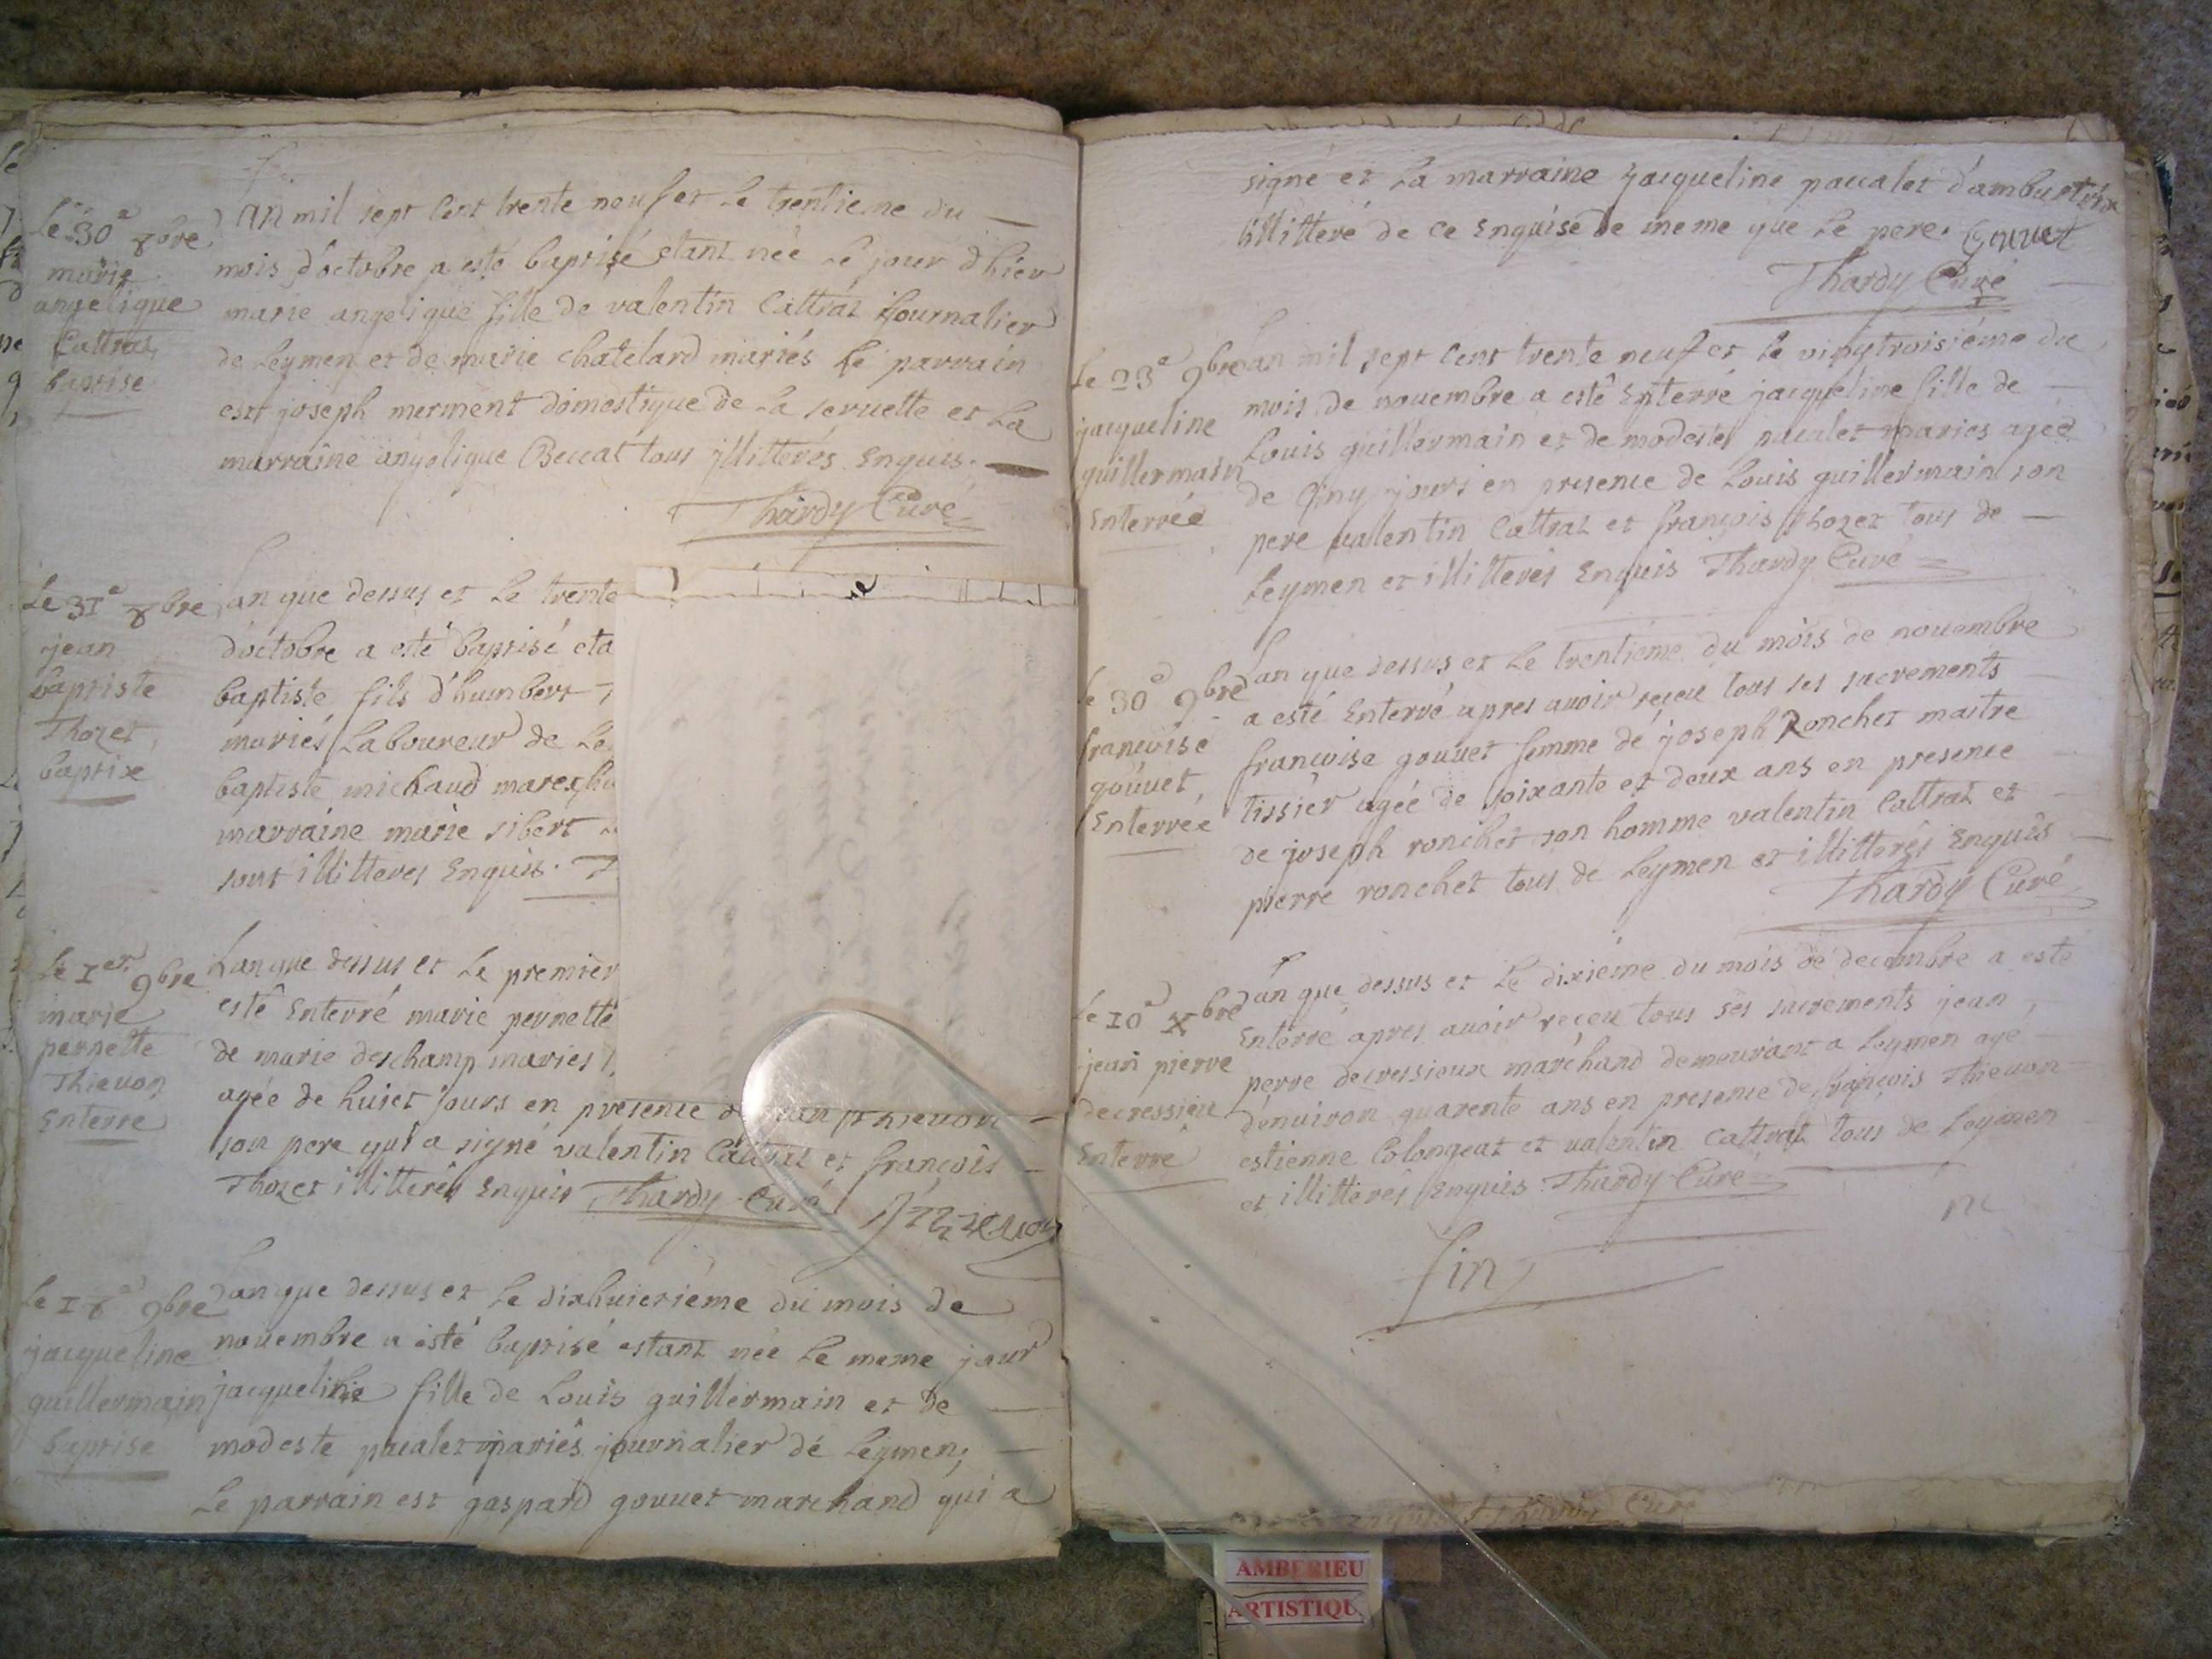 Le 30e 8bre
marie
angelique
Cattraz
baptise
Lan mil sept Cent trente neuf et Le trentieme du
mois d'octobre a esté baptisé etant née Le jour d'hier
marie angelique fille de valentin Cattraz journalier
de Leymen et de marie chatelard mariés Le parrain
est joseph merment domestique de La servette et La
marraine angelique Beccat tous illitterés Enquis.
Thardy Curé
Le 31e 8bre
jean
baptiste
Thozet
baptise
Lan que dessus et Le trente
d'octobre a esté baptisé eta
baptiste fils d'humbert
mariés Laboureur de Le
baptiste michaud marescha
marraine marie sibert
sont illitteres Enquis.
Le 1er 9bre
marie
pernette
Thievon
Enterré
Lan que dessus et Le premier
esté Enterré marie pernette
de marie deschamp maries
agée de huict jours en presence de jean Thievon
son pere qui a signé valentin Cattraz et françois
Thozet illitterés Enquis Thardy Curé
Le 18e 9bre
jacqueline
guillermain
baptise
Lan que dessus et Le dixhuictiéme du mois de
novembre a esté baptisé estant née Le meme jour
jacqueline fille de Louis guillermain et de
modeste pacalet mariés journalier de Leymen,
Le parrain est gaspard gouvet marchand qui a
signé et La marraine jacqueline pacalet d'ambutrix
illitteré de ce Enquise de meme que Le pere. Gouvet
Thardy Curé
Le 23e 9bre
jacqueline
guillermain
Enterrée
Lan mil sept Cent trente neuf et Le vingtroisiéme du
mois de novembre a esté Enterré jacqueline fille de
Louis guillermain et de modeste pacalet maries agée
de Cinq jours en presence de Louis guillermain son
pere valentin Cattraz et françois Thozet tous de
Leymen et illitterés Enquis Thardy Curé
Le 30e 9bre
françoise
gouvet
Enterrée
Lan que dessus et Le trentiéme du mois de novembre
a esté Enterré apres avoir reçeu tous ses sacrements
françoise gouvet femme de joseph Ronchet maitre
tissier agée de soixante et deux ans en presence
de joseph ronchet son homme valentin Cattraz et
pierre ronchet tous de Leymen et illitterés Enquis
Thardy Curé
Le 10e Xbre
jean pierre
decressieu
Enterré
Lan que dessus et Le dixiéme du mois de decembre a esté
Enterré apres avoir reçeu tous ses sacrements jean
perre decressieux marchand demeurant a Leymen agé
d'environ quarente ans en presence de françois Thievon
estienne Colongeat et valentin Cattraz tous de Leymen
et illitterés Enquis Thardy Curé
fin
Curé
AMBERIEU
ARTISTIQU